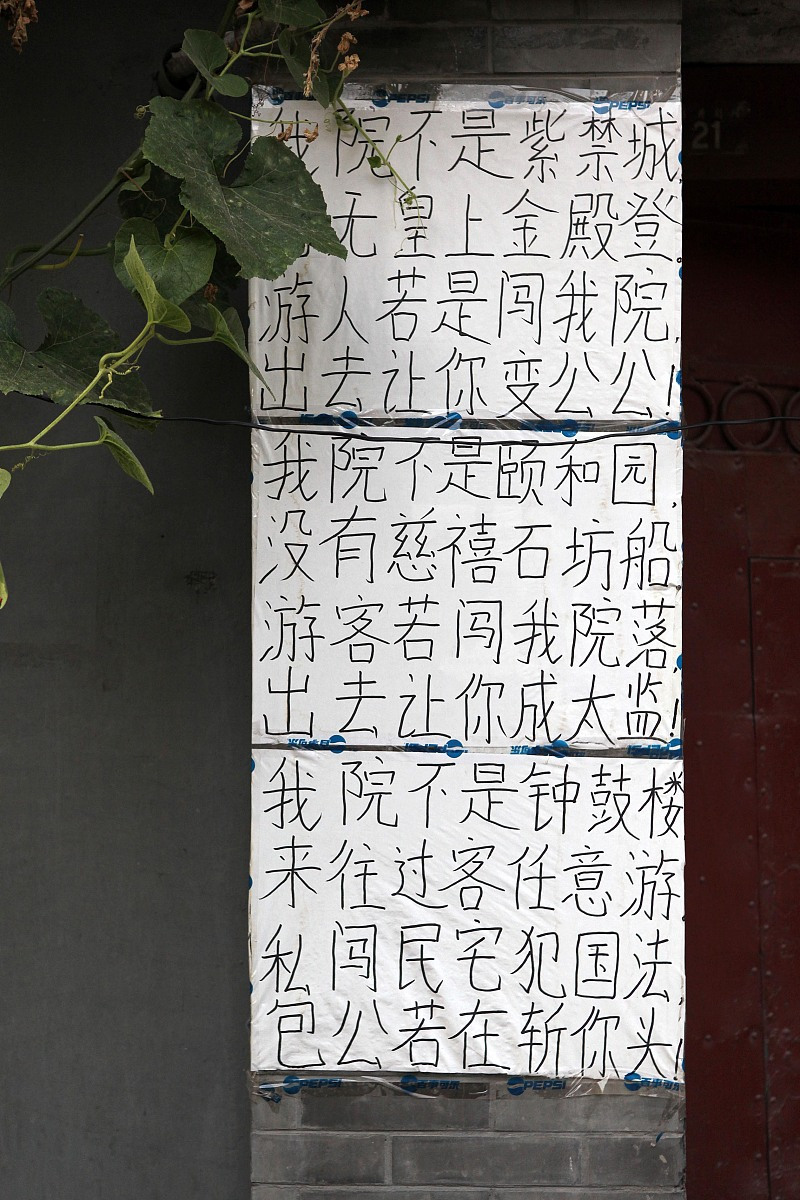 PEPSI 百事可乐 PEPSI
21
我院不是紫禁城,
无皇上金殿登。
游人若是闯我院,
出去让你变公公!
我院不是颐和园,
没有慈禧石坊船。
游客若闯我院落,
出去让你成太监!
我院不是钟鼓楼
来往过客任意游。
私闯民宅犯国法,
包公若在斩你头!
PEPSI 百事可乐 PEPSI 百事可乐